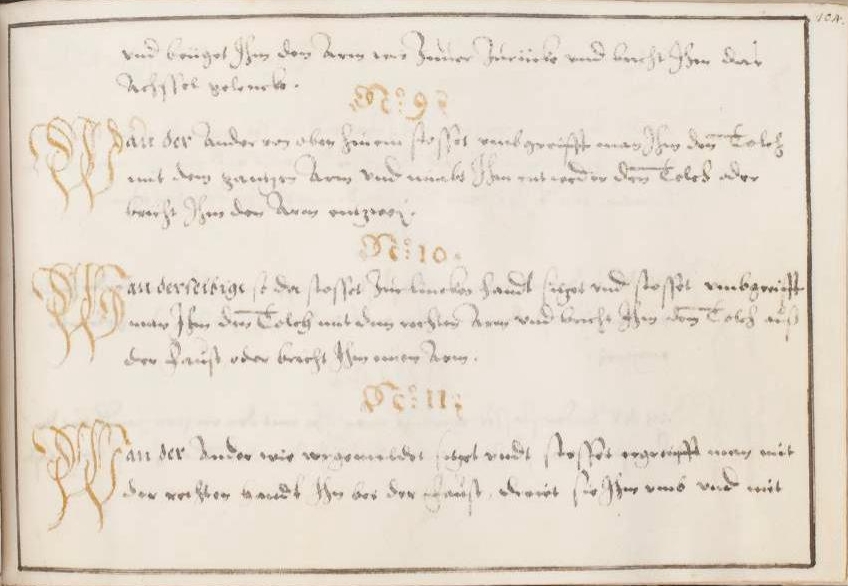 104.
und beüget Ihm den Arm wie Zuuor Zurücke und bricht Ihm das
Achssel gelencke.
No: 9:
Wan der Ander von oben hinein stosset umbgreifft man Ihm den Tolch
mit dem gantzen Arm und nimbt Ihm entweder den Tolch oder
bricht Ihm den Arm entzwei.
No: 10.
Wan derselbige so da stosset Zur lincken handt lieget und stosset umbgreifft
man Ihm den Tolch mit dem rechten Arm und bricht Ihm den Tolch auß
der Faust oder bricht Ihm einen Arm.
No: 11:
Wan der Ander wie vorgemeldet lieget undt stosset ergreifft man mit
der rechten handt Ihn bei der Faust, drehet sie Ihm umb und mit